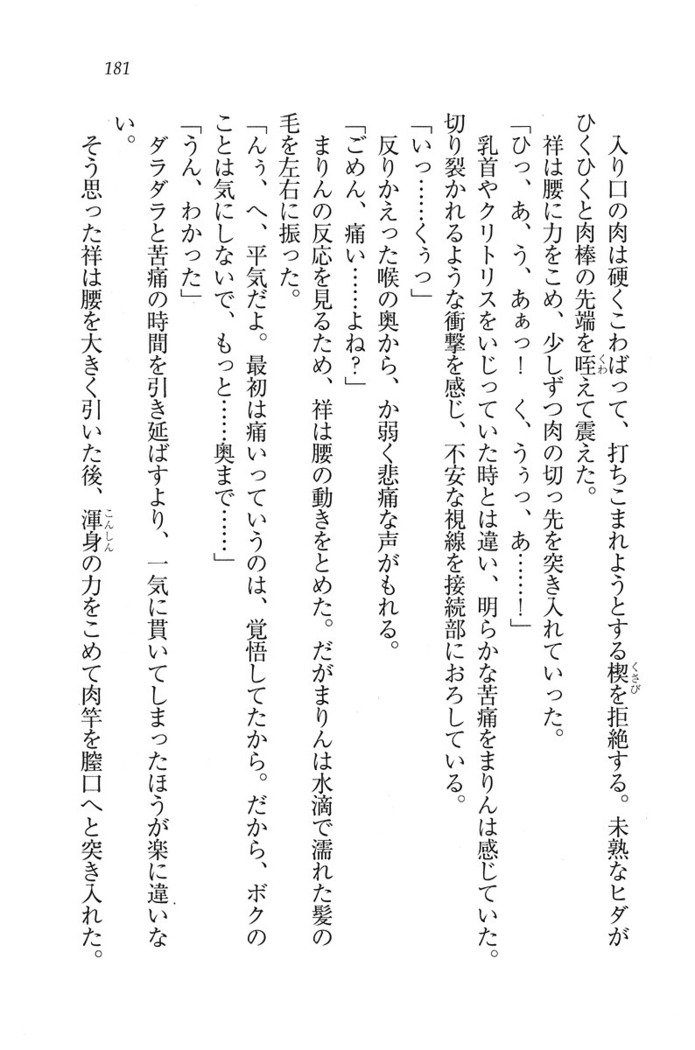 181
入り口の肉は硬くこわばって、打ちこまれようとする楔を拒絶する。未熟なヒダが
ひくひくと肉棒の先端を咥えて震えた。
祥は腰に力をこめ、少しずつ肉の切っ先を突き入れていった。
「ひっ、あ、う、あぁっ！　く、うぅっ、あ……！」
乳首やクリトリスをいじっていた時とは違い、明らかな苦痛をまりんは感じていた。
切り裂かれるような衝撃を感じ、不安な視線を接続部におろしている。
「いっ……くぅっ」
反りかえった喉の奥から、か弱く悲痛な声がもれる。
「ごめん、痛い……よね？」
まりんの反応を見るため、祥は腰の動きをとめた。だがまりんは水滴で濡れた髪の
毛を左右に振った。
「んぅ、へ、平気だよ。最初は痛いっていうのは、覚悟してたから。だから、ボクの
ことは気にしないで、もっと……奥まで……」
「うん、わかった」
ダラダラと苦痛の時間を引き延ばすより、一気に貫いてしまったほうが楽に違いな
い。
そう思った祥は腰を大きく引いた後、渾身の力をこめて肉竿を膣口へと突き入れた。